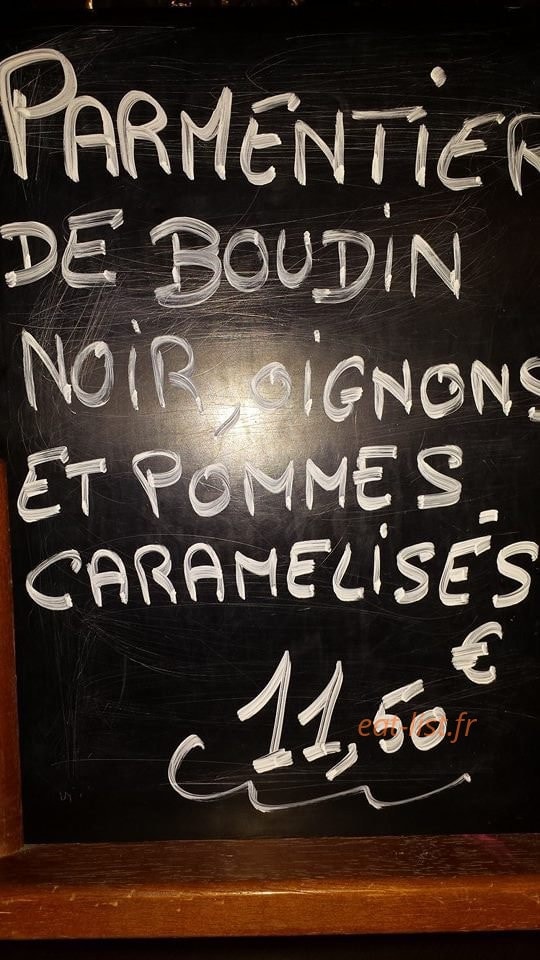 PARMENTIER
DE BOUDIN
NOIR, OIGNONS
ET POMMES
CARAMELISÉS
€
11,50
eat-list.fr